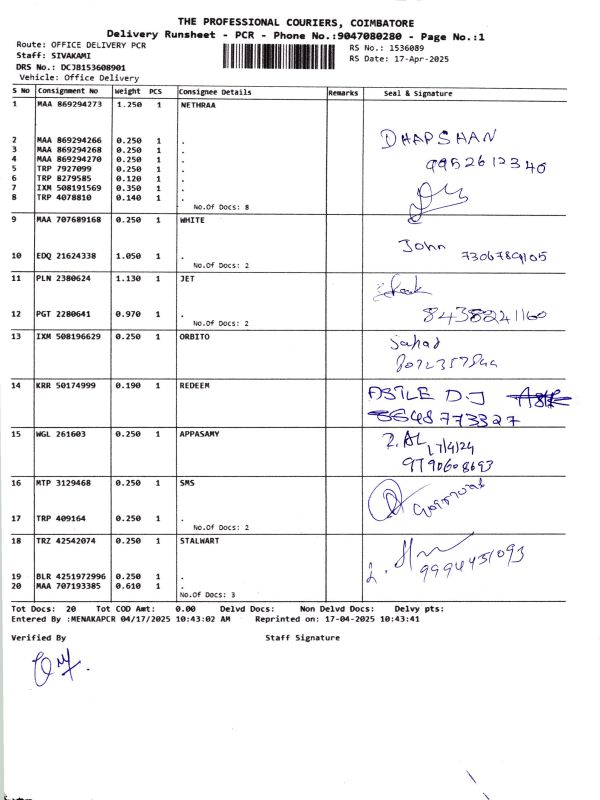 THE PROFESSIONAL COURIERS, COIMBATORE
Delivery Runsheet - PCR - Phone No.:9047080280 - Page No.:1
Route: OFFICE DELIVERY PCR
RS No.: 1536089
Staff: SIVAKAMI
RS Date: 17-Apr-2025
DRS No.: DCJB153608901
Vehicle: Office Delivery
S No Consignment No Weight PCS Consignee Details Remarks Seal & Signature
1 MAA 869294273 1.250 1 NETHRAA
2 MAA 869294266 0.250 1 .
3 MAA 869294268 0.250 1 .
4 MAA 869294270 0.250 1 .
5 TRP 7927099 0.250 1 .
6 TRP 8279585 0.120 1 .
7 IXM 508191569 0.350 1 .
8 TRP 4078810 0.140 1 .
No.Of Docs: 8
DHARSHAN
9952612340
9 MAA 707689168 0.250 1 WHITE
10 EDQ 21624338 1.050 1 .
No.Of Docs: 2
John 7306789105
11 PLN 2380624 1.130 1 JET
12 PGT 2280641 0.970 1 .
No.Of Docs: 2
8438241160
13 IXM 508196629 0.250 1 ORBITO
Sahad
14 KRR 50174999 0.190 1 REDEEM
D.J
773327
15 WGL 261603 0.250 1 APPASAMY
17/4/24
9790608693
16 MTP 3129468 0.250 1 SMS
17 TRP 409164 0.250 1 .
No.Of Docs: 2
18 TRZ 42542074 0.250 1 STALWART
19 BLR 4251972996 0.250 1 .
20 MAA 707193385 0.610 1 .
No.Of Docs: 3
9994451093
Tot Docs: 20 Tot COD Amt: 0.00 Delvd Docs: Non Delvd Docs: Delvy pts:
Entered By :MENAKAPCR 04/17/2025 10:43:02 AM Reprinted on: 17-04-2025 10:43:41
Verified By Staff Signature